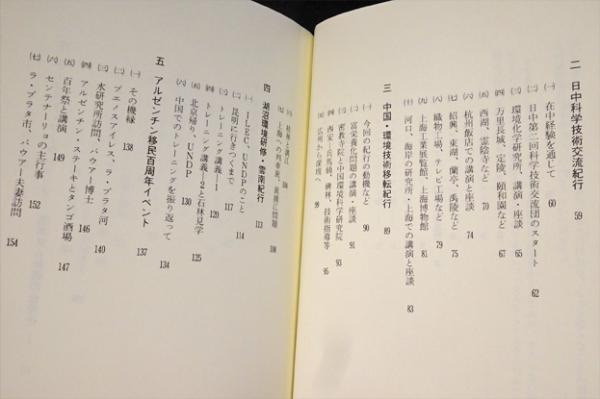 二 日中科学技術交流紀行 59
㈠ 在中経験を通じて 60
㈡ 日中第二回科学技術交流団のスタート 62
㈢ 環境化学研究所、講演・座談 65
㈣ 万里長城、定陵、頤和園など 67
㈤ 西湖、霊陰寺など 70
㈥ 杭州飯店での講演と座談 74
㈦ 紹興、東湖、蘭亭、禹陵など 75
㈧ 織物工場、テレビ工場など 79
㈨ 上海工業展覧館、上海博物館 81
㈩ 河口、海岸の研究所・上海での講演と座談 83
三 中国・環境技術移転紀行 89
㈠ 今回の紀行の動機など 90
㈡ 富栄養化問題の講演・座談 91
㈢ 密教寺院と中国環境科学研究院 93
㈣ 西安―兵馬俑、碑林、技術指導等 95
㈤ 広州から深圳へ 99
㈥
上海への列車旅、黄浦江問題 108
四 湖沼環境研修・雲南紀行 113
㈠ ILEC、UNDPのこと 114
㈡ 昆明に行きつくまで 117
㈢ トレーニング講義―1 120
㈣ トレーニング講義―2と石林見学 125
㈤ 北京帰り、UNDP 130
㈥ 中国でのトレーニングを振り返って 134
五 アルゼンチン移民百周年イベント 137
㈠ その機縁 138
㈡ ブエノスアイレス、ラ・プラタ河
㈢ 水研究所訪問、バウアー博士
㈣ アルゼンチン・ステーキとタンゴ酒場 147
㈤ 百年祭と講演 149
㈥ センテナーリョの主行事 152
㈦ ラ・プラタ市、バウアー夫妻訪問 154